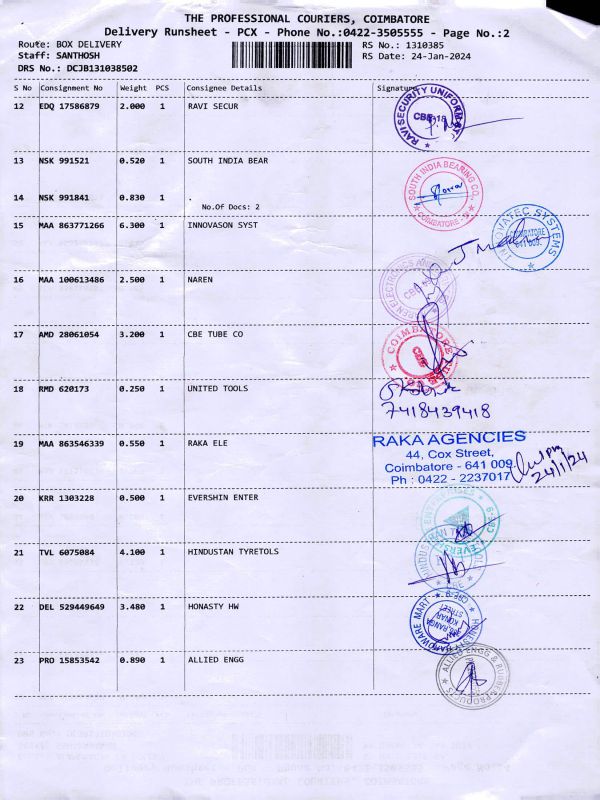 THE PROFESSIONAL COURIERS, COIMBATORE
Delivery Runsheet - PCX - Phone No.:0422-3505555 - Page No.:2
Route: BOX DELIVERY RS No.: 1310385
Staff: SANTHOSH RS Date: 24-Jan-2024
DRS No.: DCJB131038502
S No Consignment No Weight PCS Consignee Details Signature
12 EDQ 17586879 2.000 1 RAVI SECUR
RAVI SECURITY UNIFORM
13 NSK 991521 0.520 1 SOUTH INDIA BEAR
SOUTH INDIA BEARING CO.
COIMBATORE
14 NSK 991841 0.830 1 .
No.Of Docs: 2
15 MAA 863771266 6.300 1 INNOVASON SYST
INNOVATEC SYSTEMS
COIMBATORE
641 009.
16 MAA 100613486 2.500 1 NAREN
17 AMD 28061054 3.200 1 CBE TUBE CO
COIMBATORE
18 RMD 620173 0.250 1 UNITED TOOLS
7418439418
19 MAA 863546339 0.550 1 RAKA ELE
RAKA AGENCIES
44, Cox Street,
Coimbatore - 641 009.
Ph : 0422 - 2237017
24/1/24
20 KRR 1303228 0.500 1 EVERSHIN ENTER
ENTERPRISES
21 TVL 6075084 4.100 1 HINDUSTAN TYRETOLS
HINDUSTAN
22 DEL 529449649 3.480 1 HONASTY HW
HARDWARE MART
CBE-9
STREET
23 PRO 15853542 0.890 1 ALLIED ENGG
ALLIED ENGG & RUBBER PRODUCTS